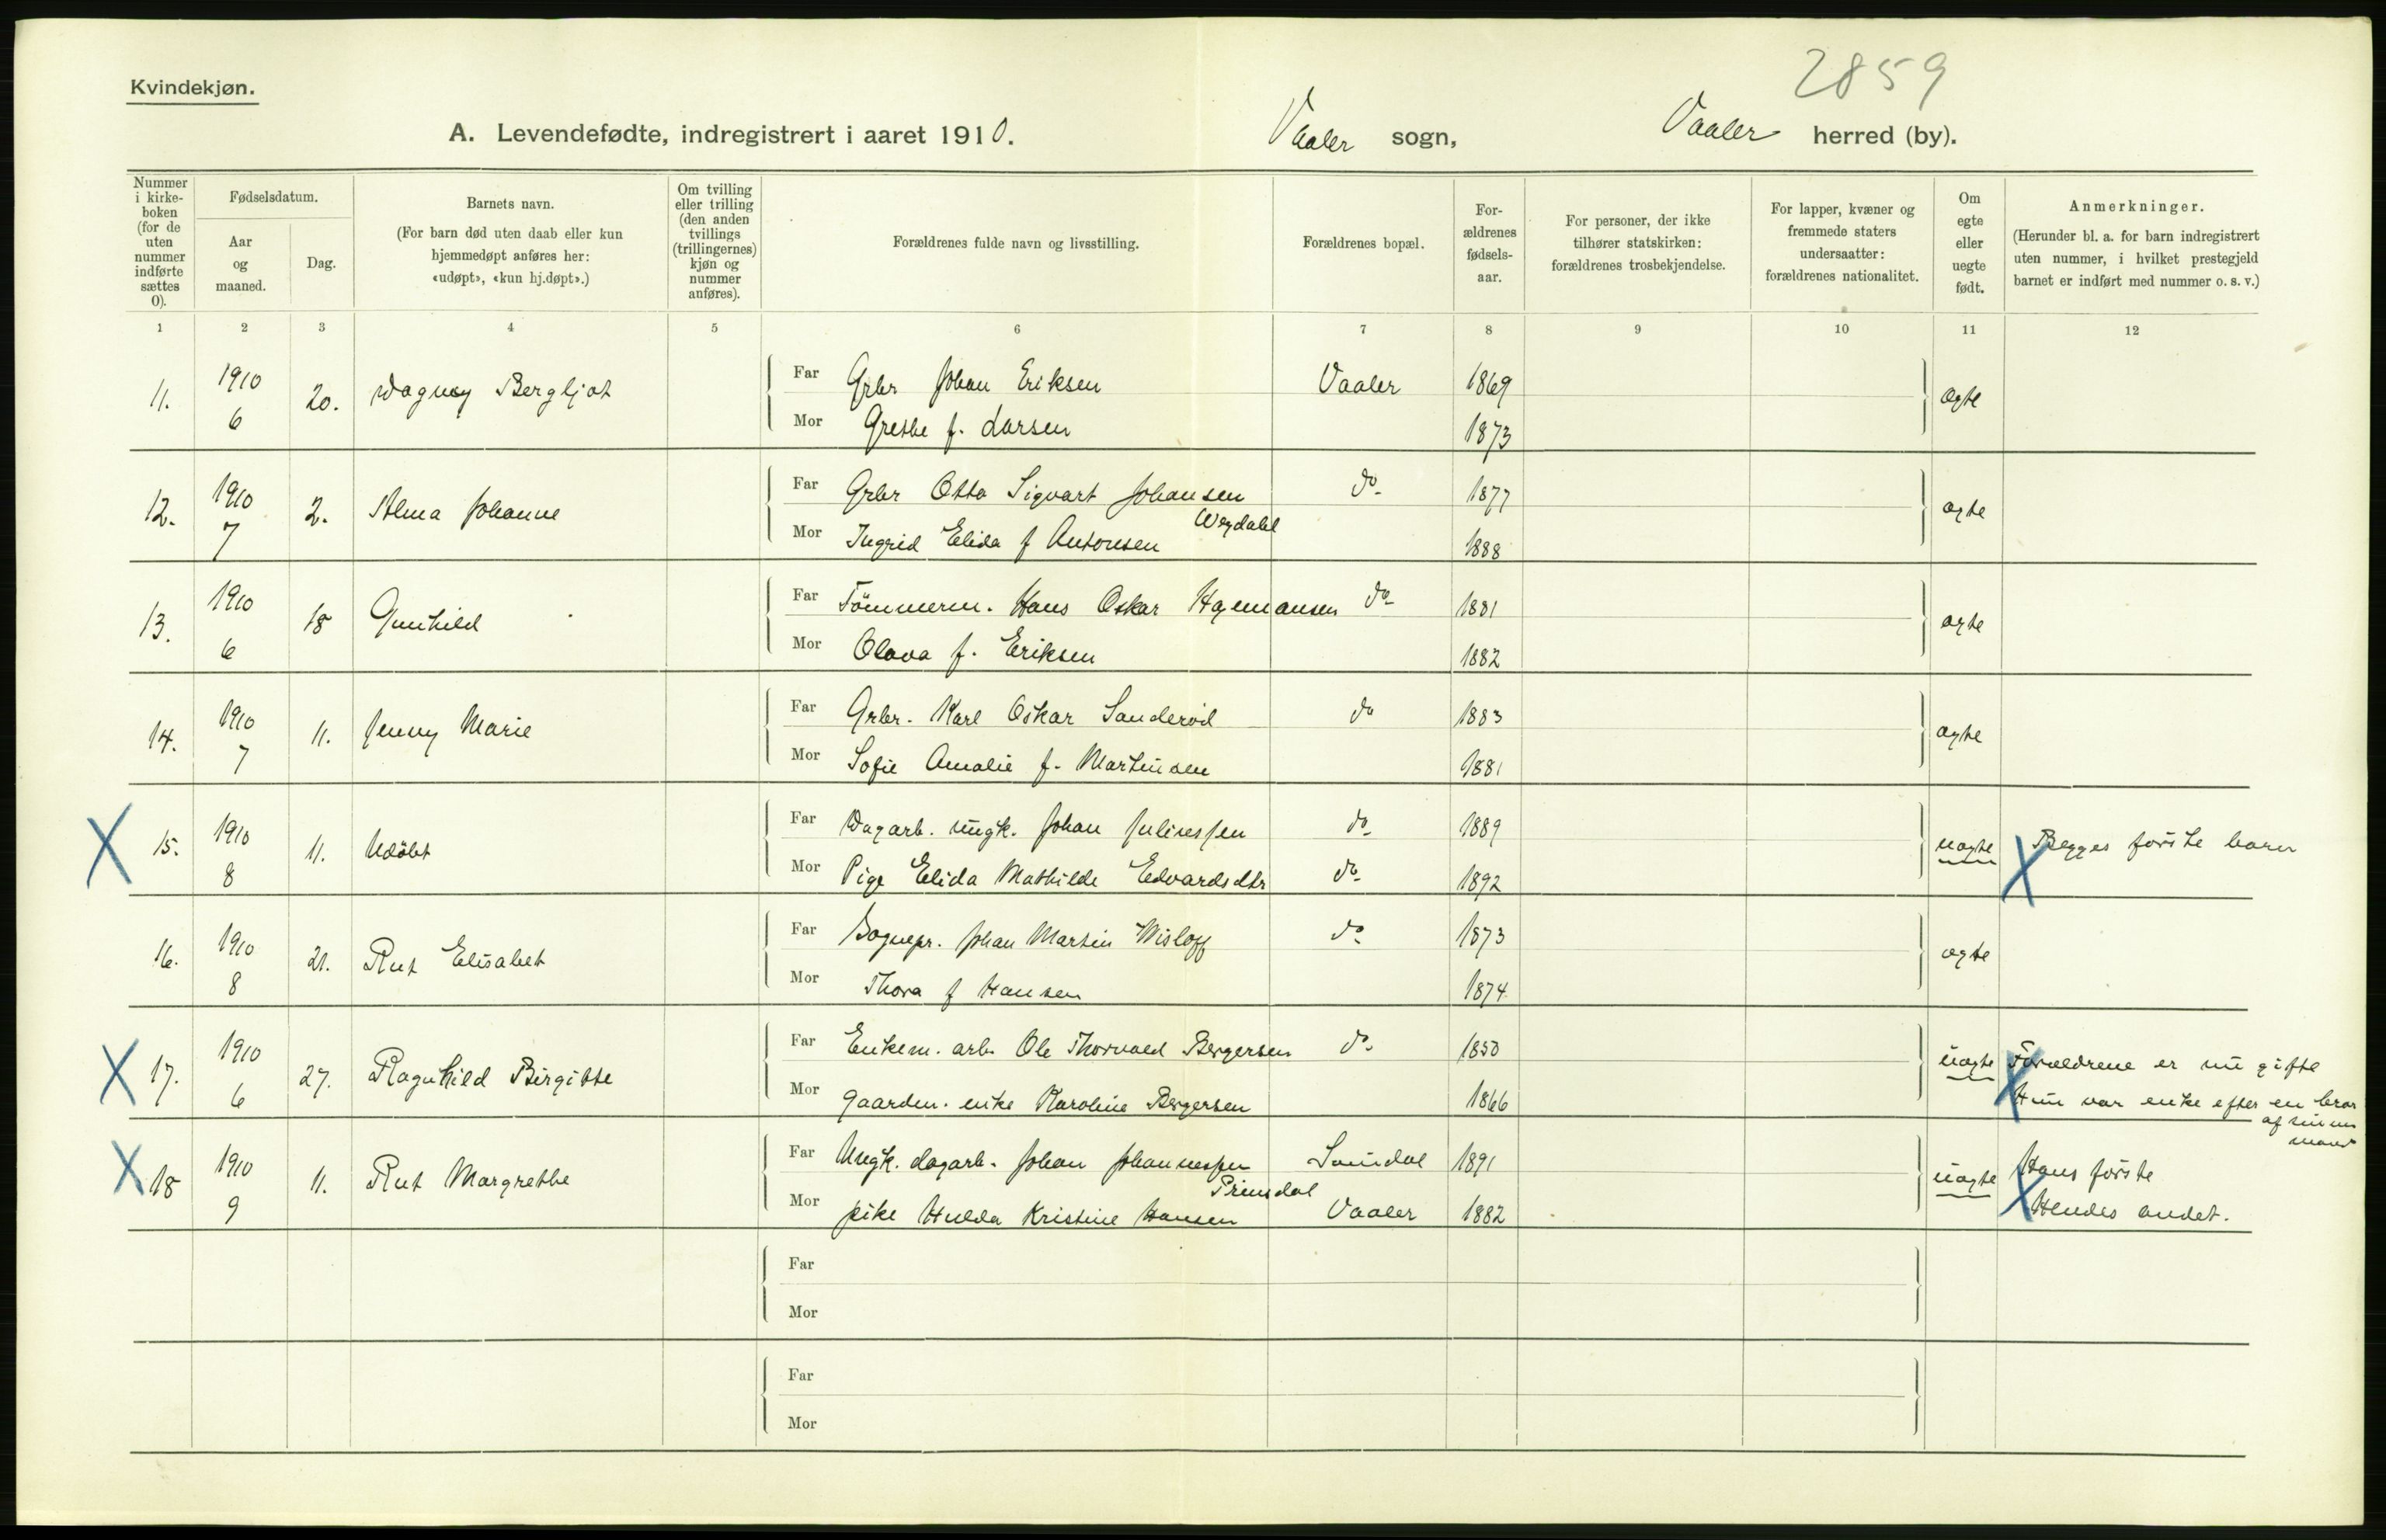 2859
Kvindekjøn.
A. Levendefødte, indregistrert i aaret 1910. Vaaler sogn, Vaaler herred (by).
Nummer i kirkeboken (for de uten nummer indførte sættes 0).
Fødselsdatum.
Aar og maaned.
Dag.
Barnets navn.
(For barn død uten daab eller kun hjemmedøpt anføres her: «udøpt», «kun hj.døpt».)
Om tvilling eller trilling (den anden tvillings (trillingernes) kjøn og nummer anføres).
Forældrenes fulde navn og livsstilling.
Forældrenes bopæl.
Forældrenes fødselsaar.
For personer, der ikke tilhører statskirken: forældrenes trosbekjendelse.
For lapper, kvæner og fremmede staters undersaatter: forældrenes nationalitet.
Om egte eller uegte født.
Anmerkninger.
(Herunder bl. a. for barn indregistrert uten nummer, i hvilket prestegjeld barnet er indført med nummer o. s. v.)
1 2 3 4 5 6 7 8 9 10 11 12
11. 1910 6 20. Dagny Bergljot
Far Grbr Johan Eriksen Vaaler 1869 ægte
Mor Grethe f. Larsen 1873
12. 1910 7 2. Alma Johanne
Far Grbr Otto Sigvart Johansen do 1877 ægte
Mor Ingrid Elida f Antonsen 1888
13. 1910 6 18 Gunhild
Far Tömmerm. Hans Oskar Hagemansen do 1881 ægte
Mor Olava f. Eriksen 1882
14. 1910 7 11. Jenny Marie
Far Grbr. Karl Oskar Sanderöd do 1883 ægte
Mor Sofie Amalie f. Martinsen 1881
X 15. 1910 8 11. Udöbt
Far Dagarb. ungk. Johan Juliussen do 1889 uægte X Begges förste barn
Mor Pige Elida Mathilde Edvardsdtr do 1892
16. 1910 8 21. Rut Elisabet
Far Sognepr. Johan Martin Wisloff do 1873 ægte
Mor Thora f Hansen 1874
X 17. 1910 6 27. Ragnhild Birgitte
Far Enkem. arb. Ole Thorvald Bergersen do 1850 uægte X Forældrene er nu gifte
Mor gaarden. enke Karoline Bergersen 1866 Hun var enke efter en bror
af sin nu
mand
X 18 1910 9 11. Rut Margrethe
Far Ungk. dagarb. Johan Johannessen 1891 uægte X Hans förste
Prinsdal
Mor pike Hulda Kristine Hansen Vaaler 1882 Hendes andet.
Far
Mor
Far
Mor